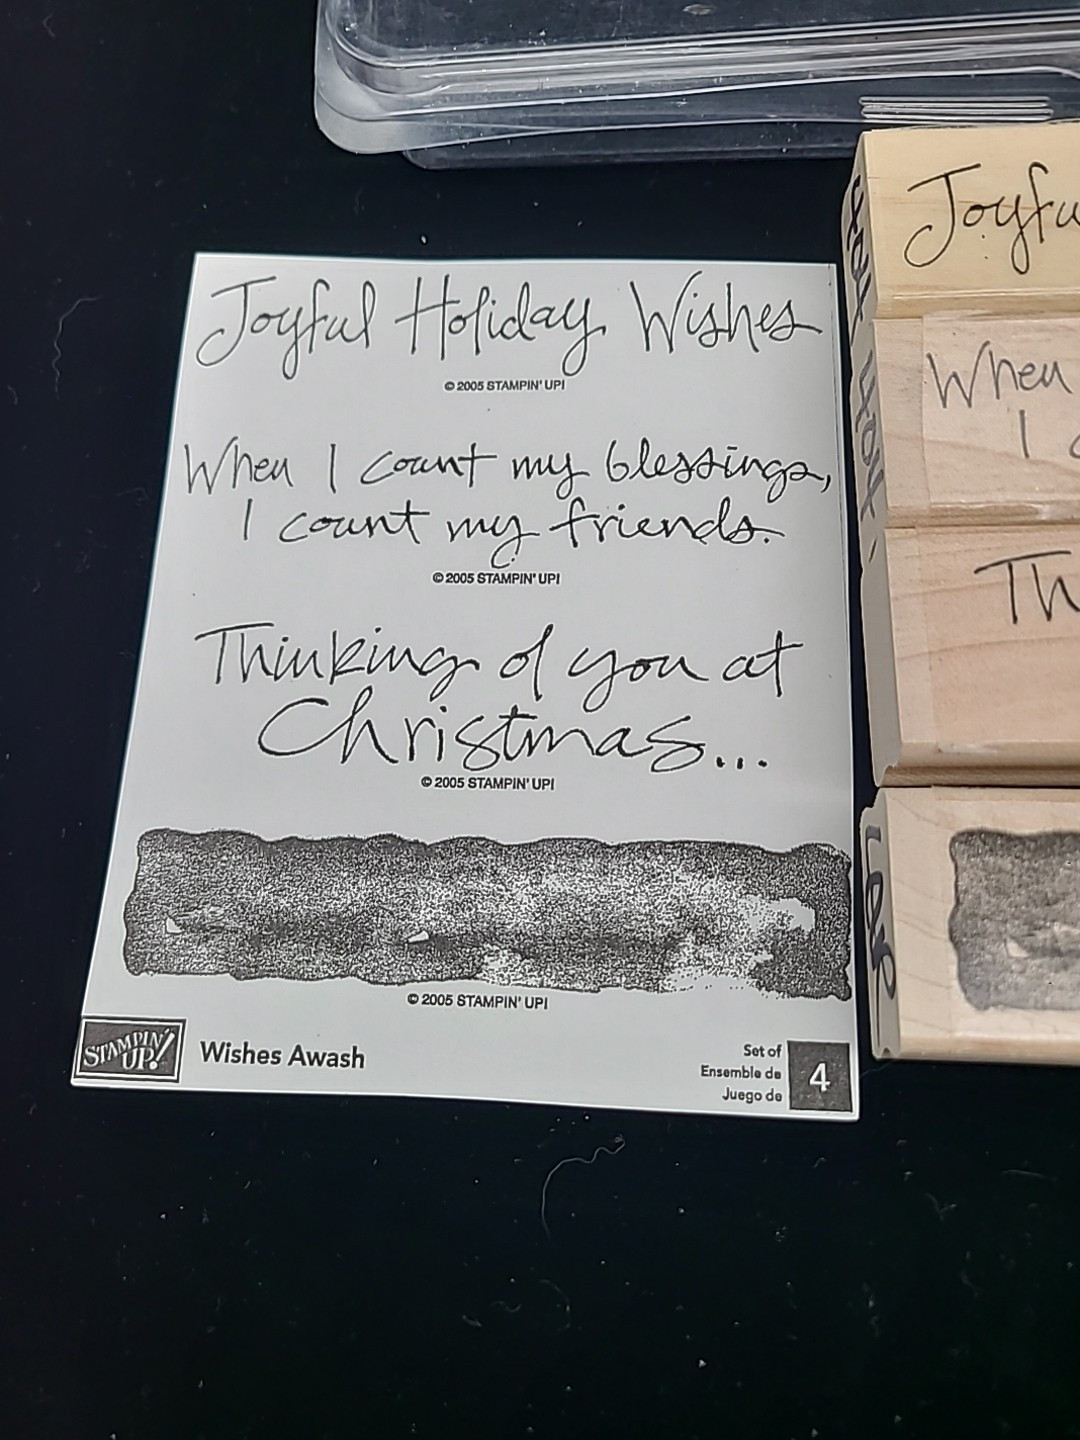 Joyful Holiday Wishes
© 2005 STAMPIN' UP!
When I count my blessings,
I count my friends.
© 2005 STAMPIN' UP!
Thinking of you at
Christmas...
© 2005 STAMPIN' UP!
© 2005 STAMPIN' UP!
STAMPIN'
UP!
Wishes Awash
Set of
Ensemble de
Juego de
4
Joyfu
When
I c
Th